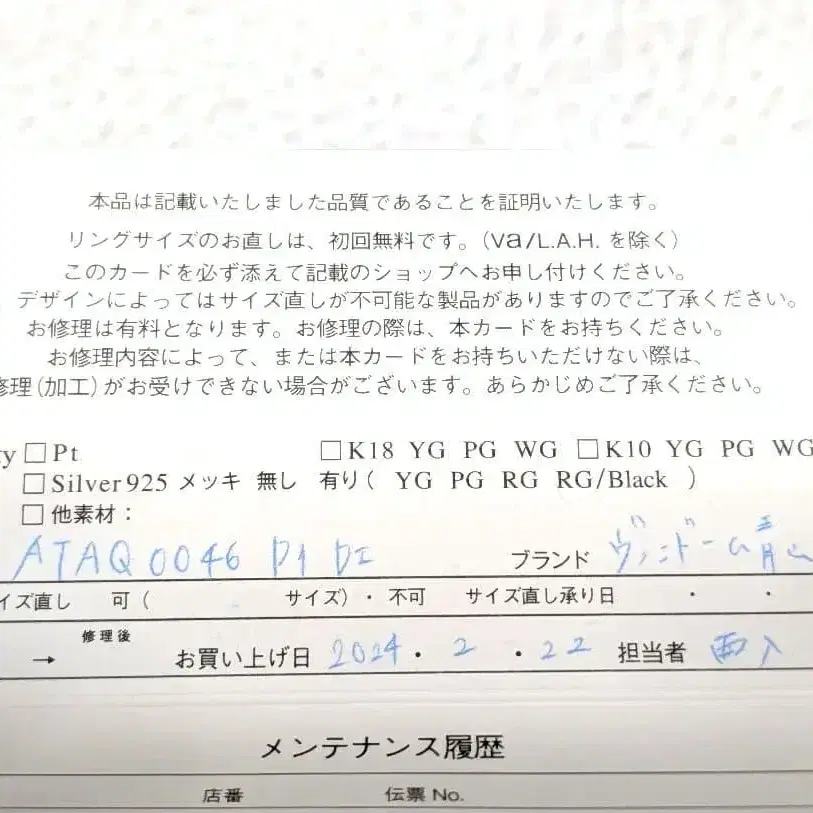 本品は記載いたしました品質であることを証明いたします。
リングサイズのお直しは、初回無料です。(va/L.A.H. を除く)
このカードを必ず添えて記載のショップへお申し付けください。
デザインによってはサイズ直しが不可能な製品がありますのでご了承ください。
お修理は有料となります。お修理の際は、本カードをお持ちください。
お修理内容によって、または本カードをお持ちいただけない際は、
修理(加工)がお受けできない場合がございます。あらかじめご了承ください。
ty □Pt □K18 YG PG WG □K10 YG PG WG
□Silver925 メッキ 無し 有り( YG PG RG RG/Black )
□他素材:
ATAQ0046 D1 DI ブランド ヴァンドーム青山
イズ直し 可( サイズ)・不可 サイズ直し承り日 ・ ・
修理後
→ お買い上げ日 2024・2・22 担当者 西入
メンテナンス履歴
店番 伝票 No.